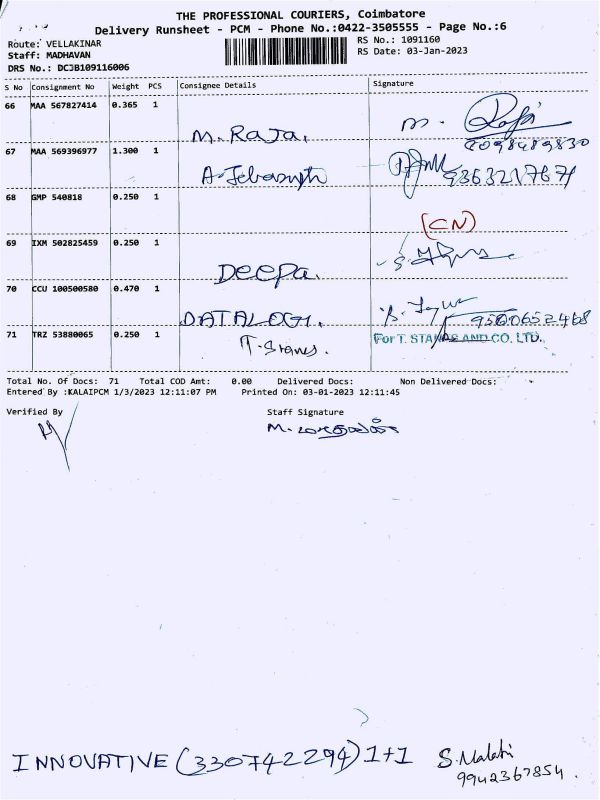 THE PROFESSIONAL COURIERS, Coimbatore
Delivery Runsheet - PCM - Phone No.:0422-3505555 - Page No.:6
Route: VELLAKINAR
RS No.: 1091160
Staff: MADHAVAN
RS Date: 03-Jan-2023
DRS No.: DCJB109116006
S No Consignment No Weight PCS Consignee Details Signature
66 MAA 567827414 0.365 1 M. RAJA.
67 MAA 569396977 1.300 1
68 GMP 540818 0.250 1 (CN)
69 IXM 502825459 0.250 1 Deepa.
70 CCU 100500580 0.470 1 DATALOGI.
71 TRZ 53880065 0.250 1 For T. STANES AND CO. LTD.
T. Stanes.
Total No. Of Docs: 71 Total COD Amt: 0.00 Delivered Docs: Non Delivered Docs:
Entered By :KALAIPCM 1/3/2023 12:11:07 PM Printed On: 03-01-2023 12:11:45
Verified By Staff Signature
INNOVATIVE (330742294) 1+1 S. Malathi
9942367854.